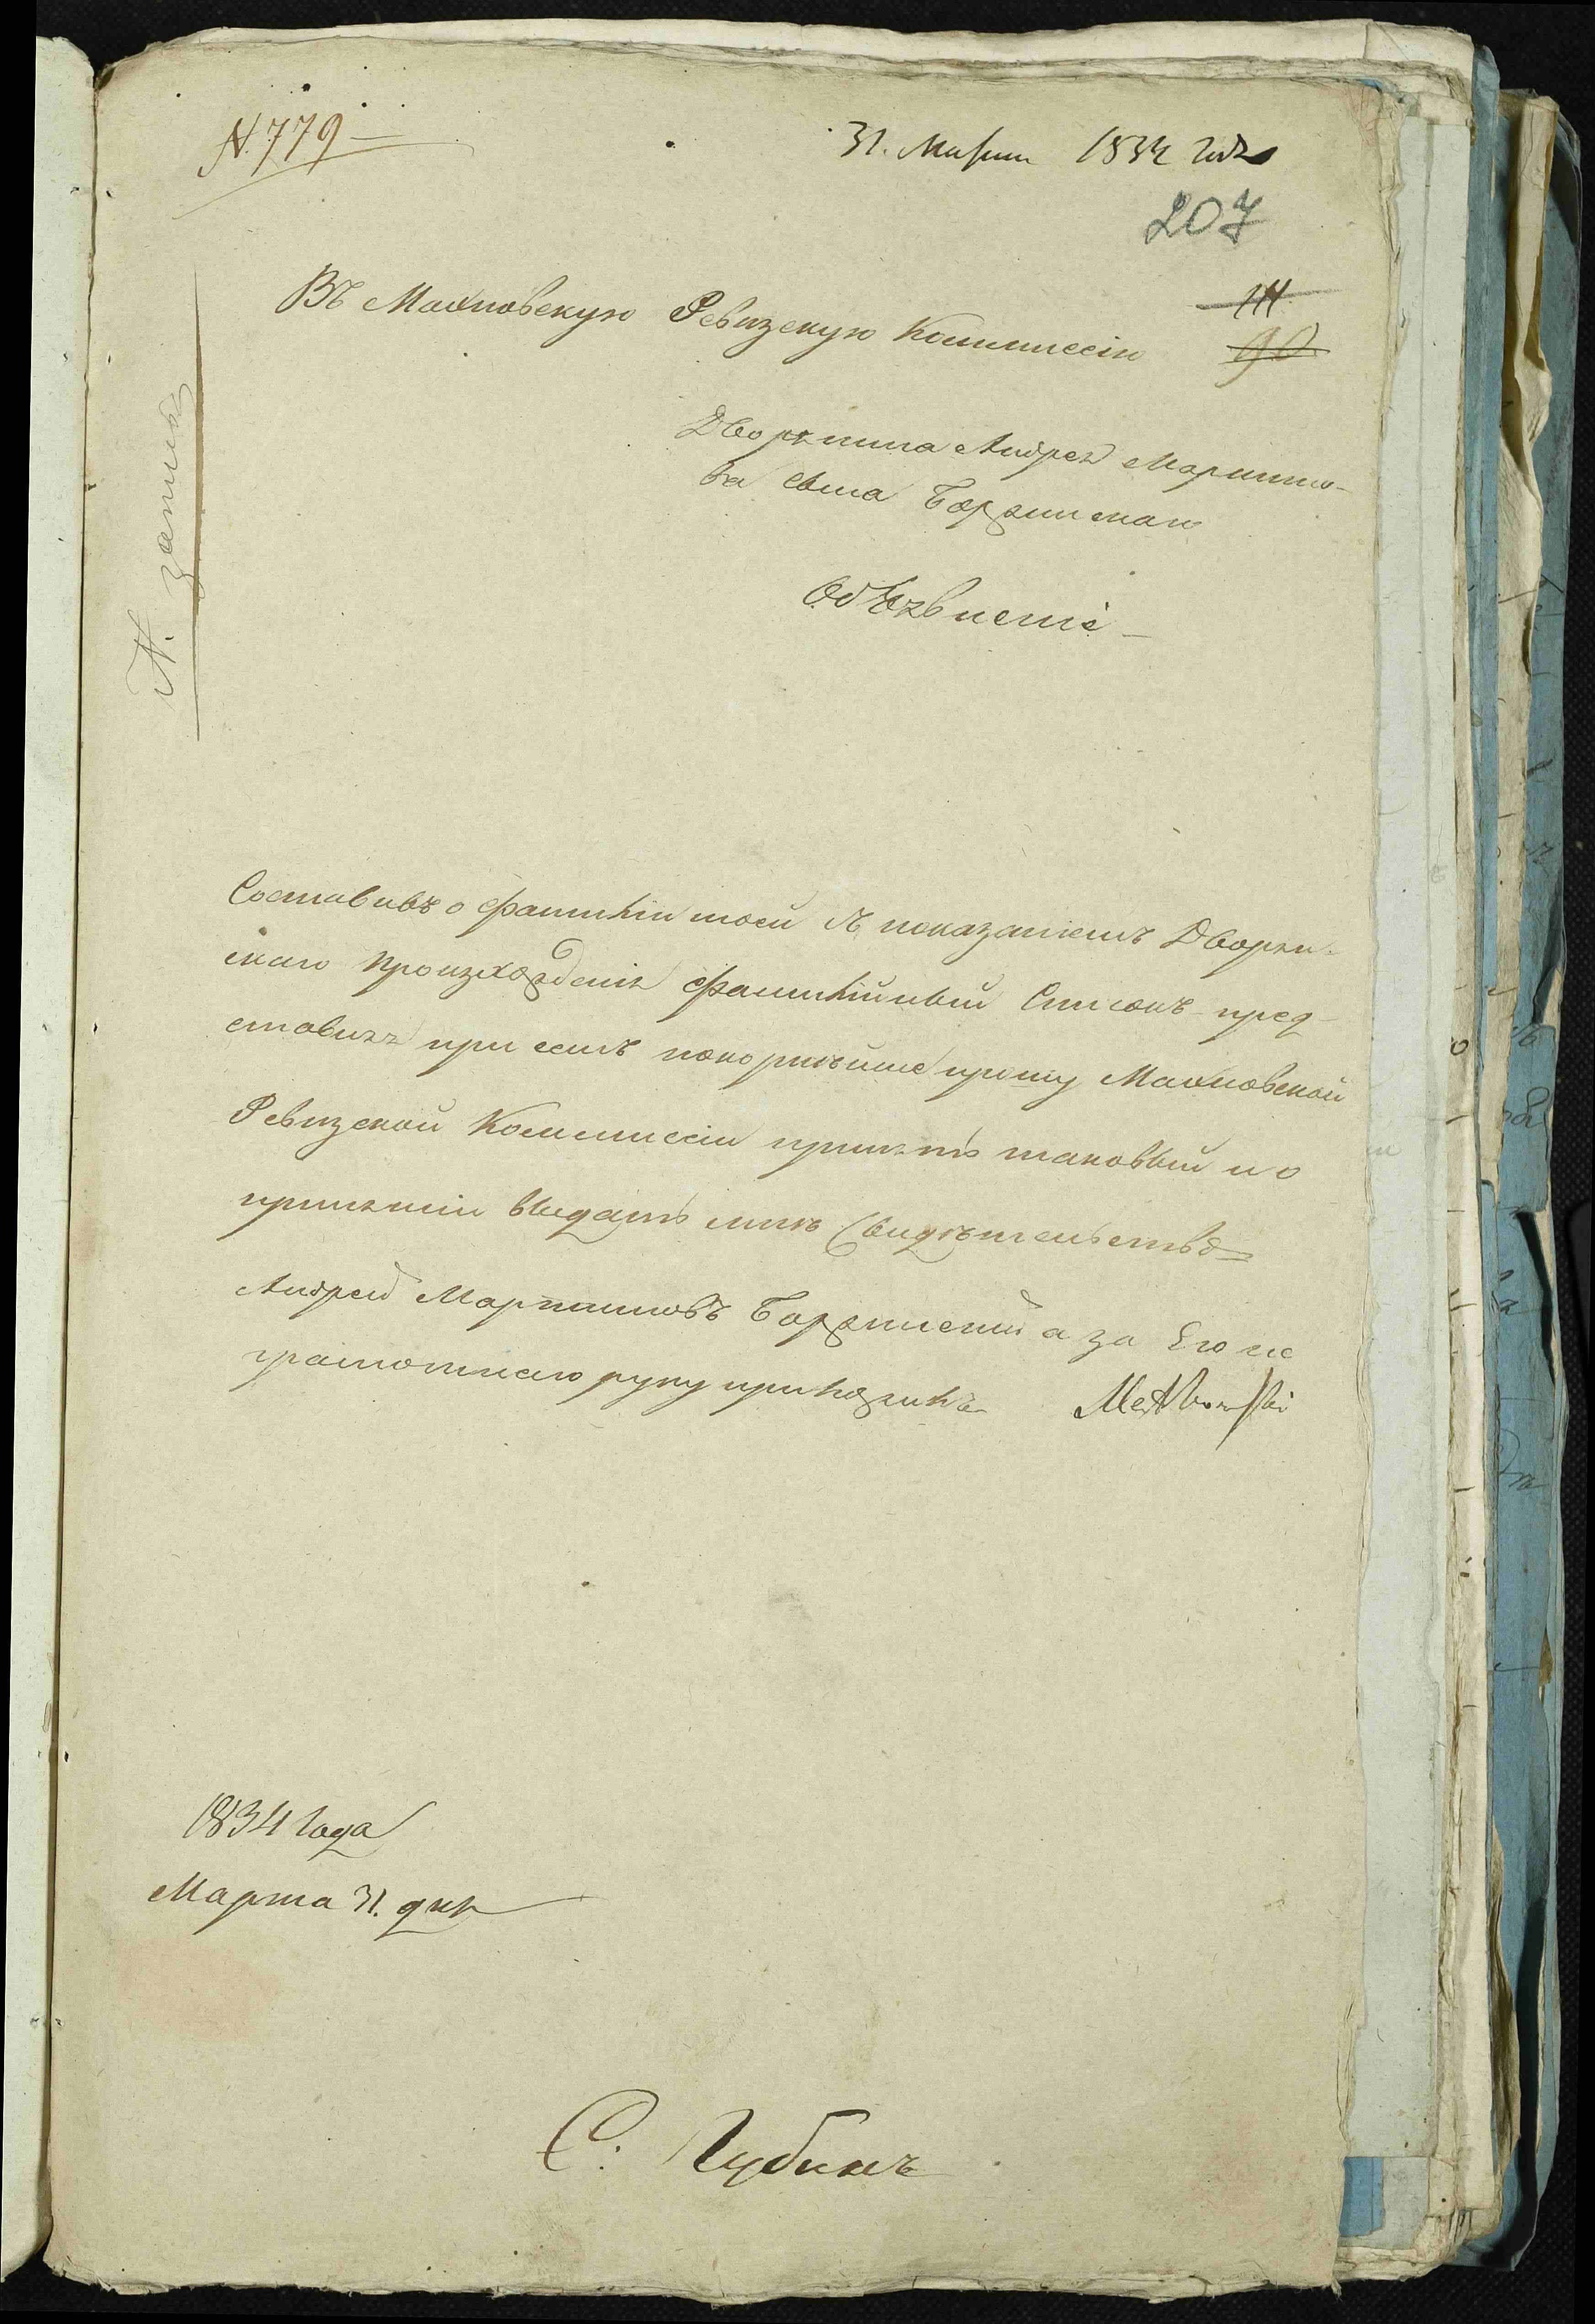 N. 779
31. Марта 1834 года
207
111
90
Въ Махновскую Ревизскую Коммиссію
Дворянина Андрея Мартино-
ва сына Боржинскаго
Объявленіе
N. запис
Составивъ о фамиліи моей съ показаніемъ Дворян-
скаго произхожденія фамилійный Списокъ пред-
ставляя при семъ покорнѣйше прошу Махновской
Ревизской Коммиссіи принять таковый и о
принятіи выдать мнѣ Свидѣтельство
Андрей Мартиновъ Боржинскій а за Его не
грамотнаго руку приложилъ
1834 года
Марта 31. дня
С. Губинъ